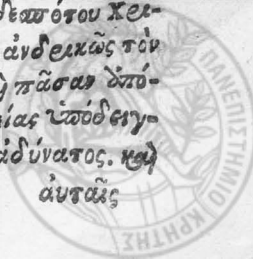 δεσπότου Χρι-
ἀνδρικῶς τὸν
πᾶσαν ὑπό-
ίας ὑπόδειγ-
ἀδύνατος. καὶ
αὐταῖς
ΠΑΝΕΠΙΣΤΗΜΙΟ ΚΡΗΤΗΣ